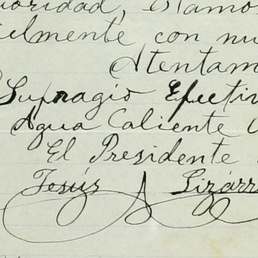 oridad, llamo
cilmente con nu
Atentam
Sufragio Efectiv
Agua Caliente
El Presidente
Jesús A Lizárr